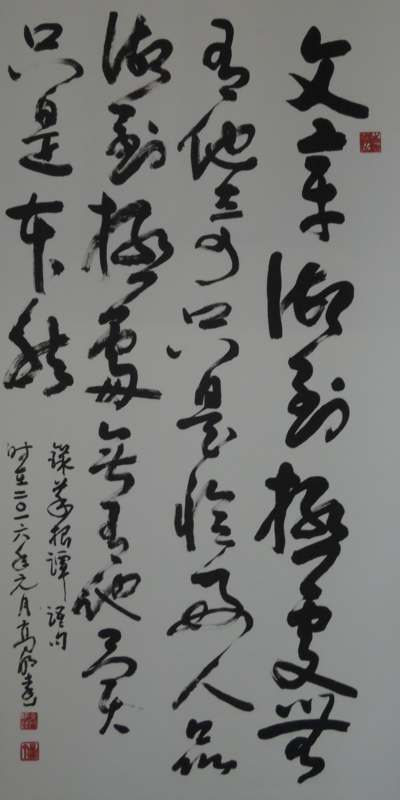 文章做到極處無
有他奇只是恰好人品
做到極處無有他異
只是本然
錄菜根譚语句
时在二〇一六年元月高